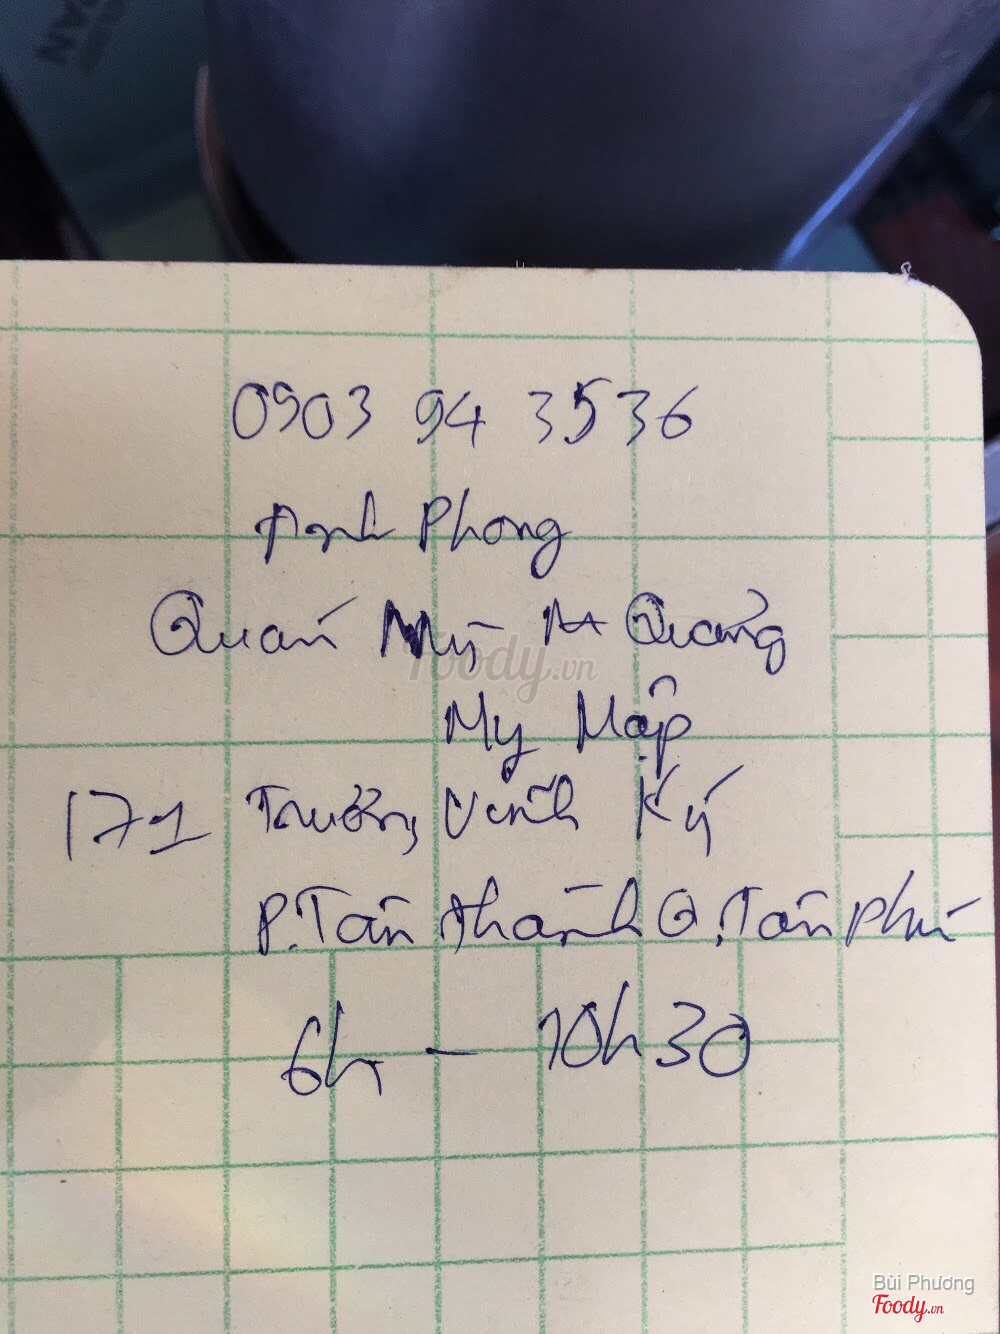 0903 94 3536
Anh Phong
Quán Mỳ Quảng
My Mập
171 Trương Vĩnh Ký
P. Tân Thành Q. Tân Phú
6h - 10h30
Foody.vn
Bùi Phương
Foody.vn